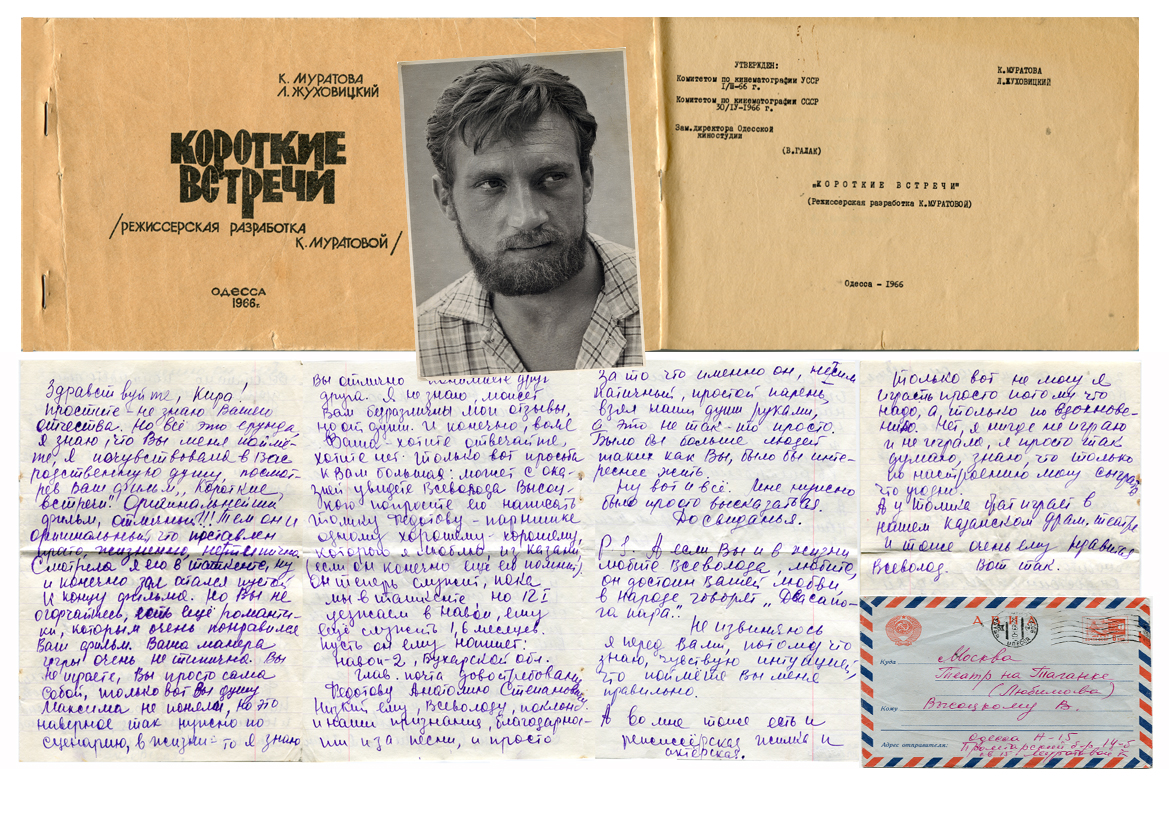 К. МУРАТОВА
Л. ЖУХОВИЦКИЙ
КОРОТКИЕ
ВСТРЕЧИ
/РЕЖИССЕРСКАЯ РАЗРАБОТКА
К. МУРАТОВОЙ/
ОДЕССА
1966г.
УТВЕРЖДЕН:
Комитетом по кинематографии УССР
I/Ш-66 г.
Комитетом по кинематографии СССР
30/IУ-1966 г.
Зам.директора Одесской
киностудии
(В.ГАЛАК)
К.МУРАТОВА
Л.ЖУХОВИЦКИЙ
"КОРОТКИЕ ВСТРЕЧИ"
(Режиссерская разработка К.МУРАТОВОЙ)
Одесса - 1966
Здравствуйте, Кира!
Простите - не знаю Вашего
отчества. Но всё это ерунда
Я знаю, что Вы меня пойме-
те, я почувствовала в Вас
родственную душу, посмот-
рев Ваш фильм "Короткие
встречи". Оригинальнейший
фильм, отличный!!! Тем он и
оригинальный что поставлен
просто, жизненно, нетипична.
Смотрела я его в Ташкенте, ну
и конечно зал остался пустой
к концу фильма. Но Вы не
огорчайтесь, есть ещё романти-
ки, которым очень понравился
Ваш фильм. Ваша манера
игры очень не типична. Вы
не играете, Вы просто сама
собой, только вот Вы душу
Максима не поняли, но это
наверное так нужно по
сценарию, в жизни-то я знаю
Вы отлично понимаете друг
друга. Я не знаю, может
Вам безразличны мои отзывы,
но от души. И конечно, воля
Ваша - хотите отвечайте,
хотите нет. Только вот просьба
к Вам большая: может с ока-
зией увидете Всеволода Высоц-
кого попросите его написать
Толику Федотову - парнишке
одному хорошему-хорошему,
которого я люблю, из Казани,
если он конечно ещё его помнит)
он теперь служит, пока
мы в Ташкенте, но 12 I
уезжаем в Навои, ему
ещё служить 1,6 месяцев.
Пусть он ему напишет:
Навои-2, Бухарской обл.
Глав. почта довостребования
Федотову Анатолию Степановичу
Низкий ему, Всеволоду, поклон
и наши признания, благодарнос-
ти из за песни, и просто
за то что именно он, несим-
патичный, простой парень,
взял наши души руками,
а это не так-то просто.
Было бы больше людей
таких как Вы, было бы инте-
реснее жить.
Ну вот и всё. Мне нужно
было просто высказаться.
До свиданья.
P.S. А если Вы и в жизни
любите Всеволода, любите,
он достоин Вашей любви,
в народе говорят
Не извиняюсь
я перед Вами, потому что
знаю, чувствую интуицией,
что поймете Вы меня
правильно.
А во мне тоже есть и
режиссёрская жилка и
актёрская.
Только вот не могу я
играть просто потому что
надо, а, только по вдохнове-
нию. Нет, я нигде не играю
и не играла, я просто так
думаю, знаю, что только
по настроению могу сыграть
что угодно.
А у Толика брат играет в
нашем казанском драм. театре
и тоже очень ему нравился
Всеволод. Вот так.
АВИА
Куда Москва
Театр на Таганке
(Любимова)
Кому Высоцкому В.
Адрес отправителя: Одесса А-15
Пролетарский б-р, 14-б
Муратовой К.